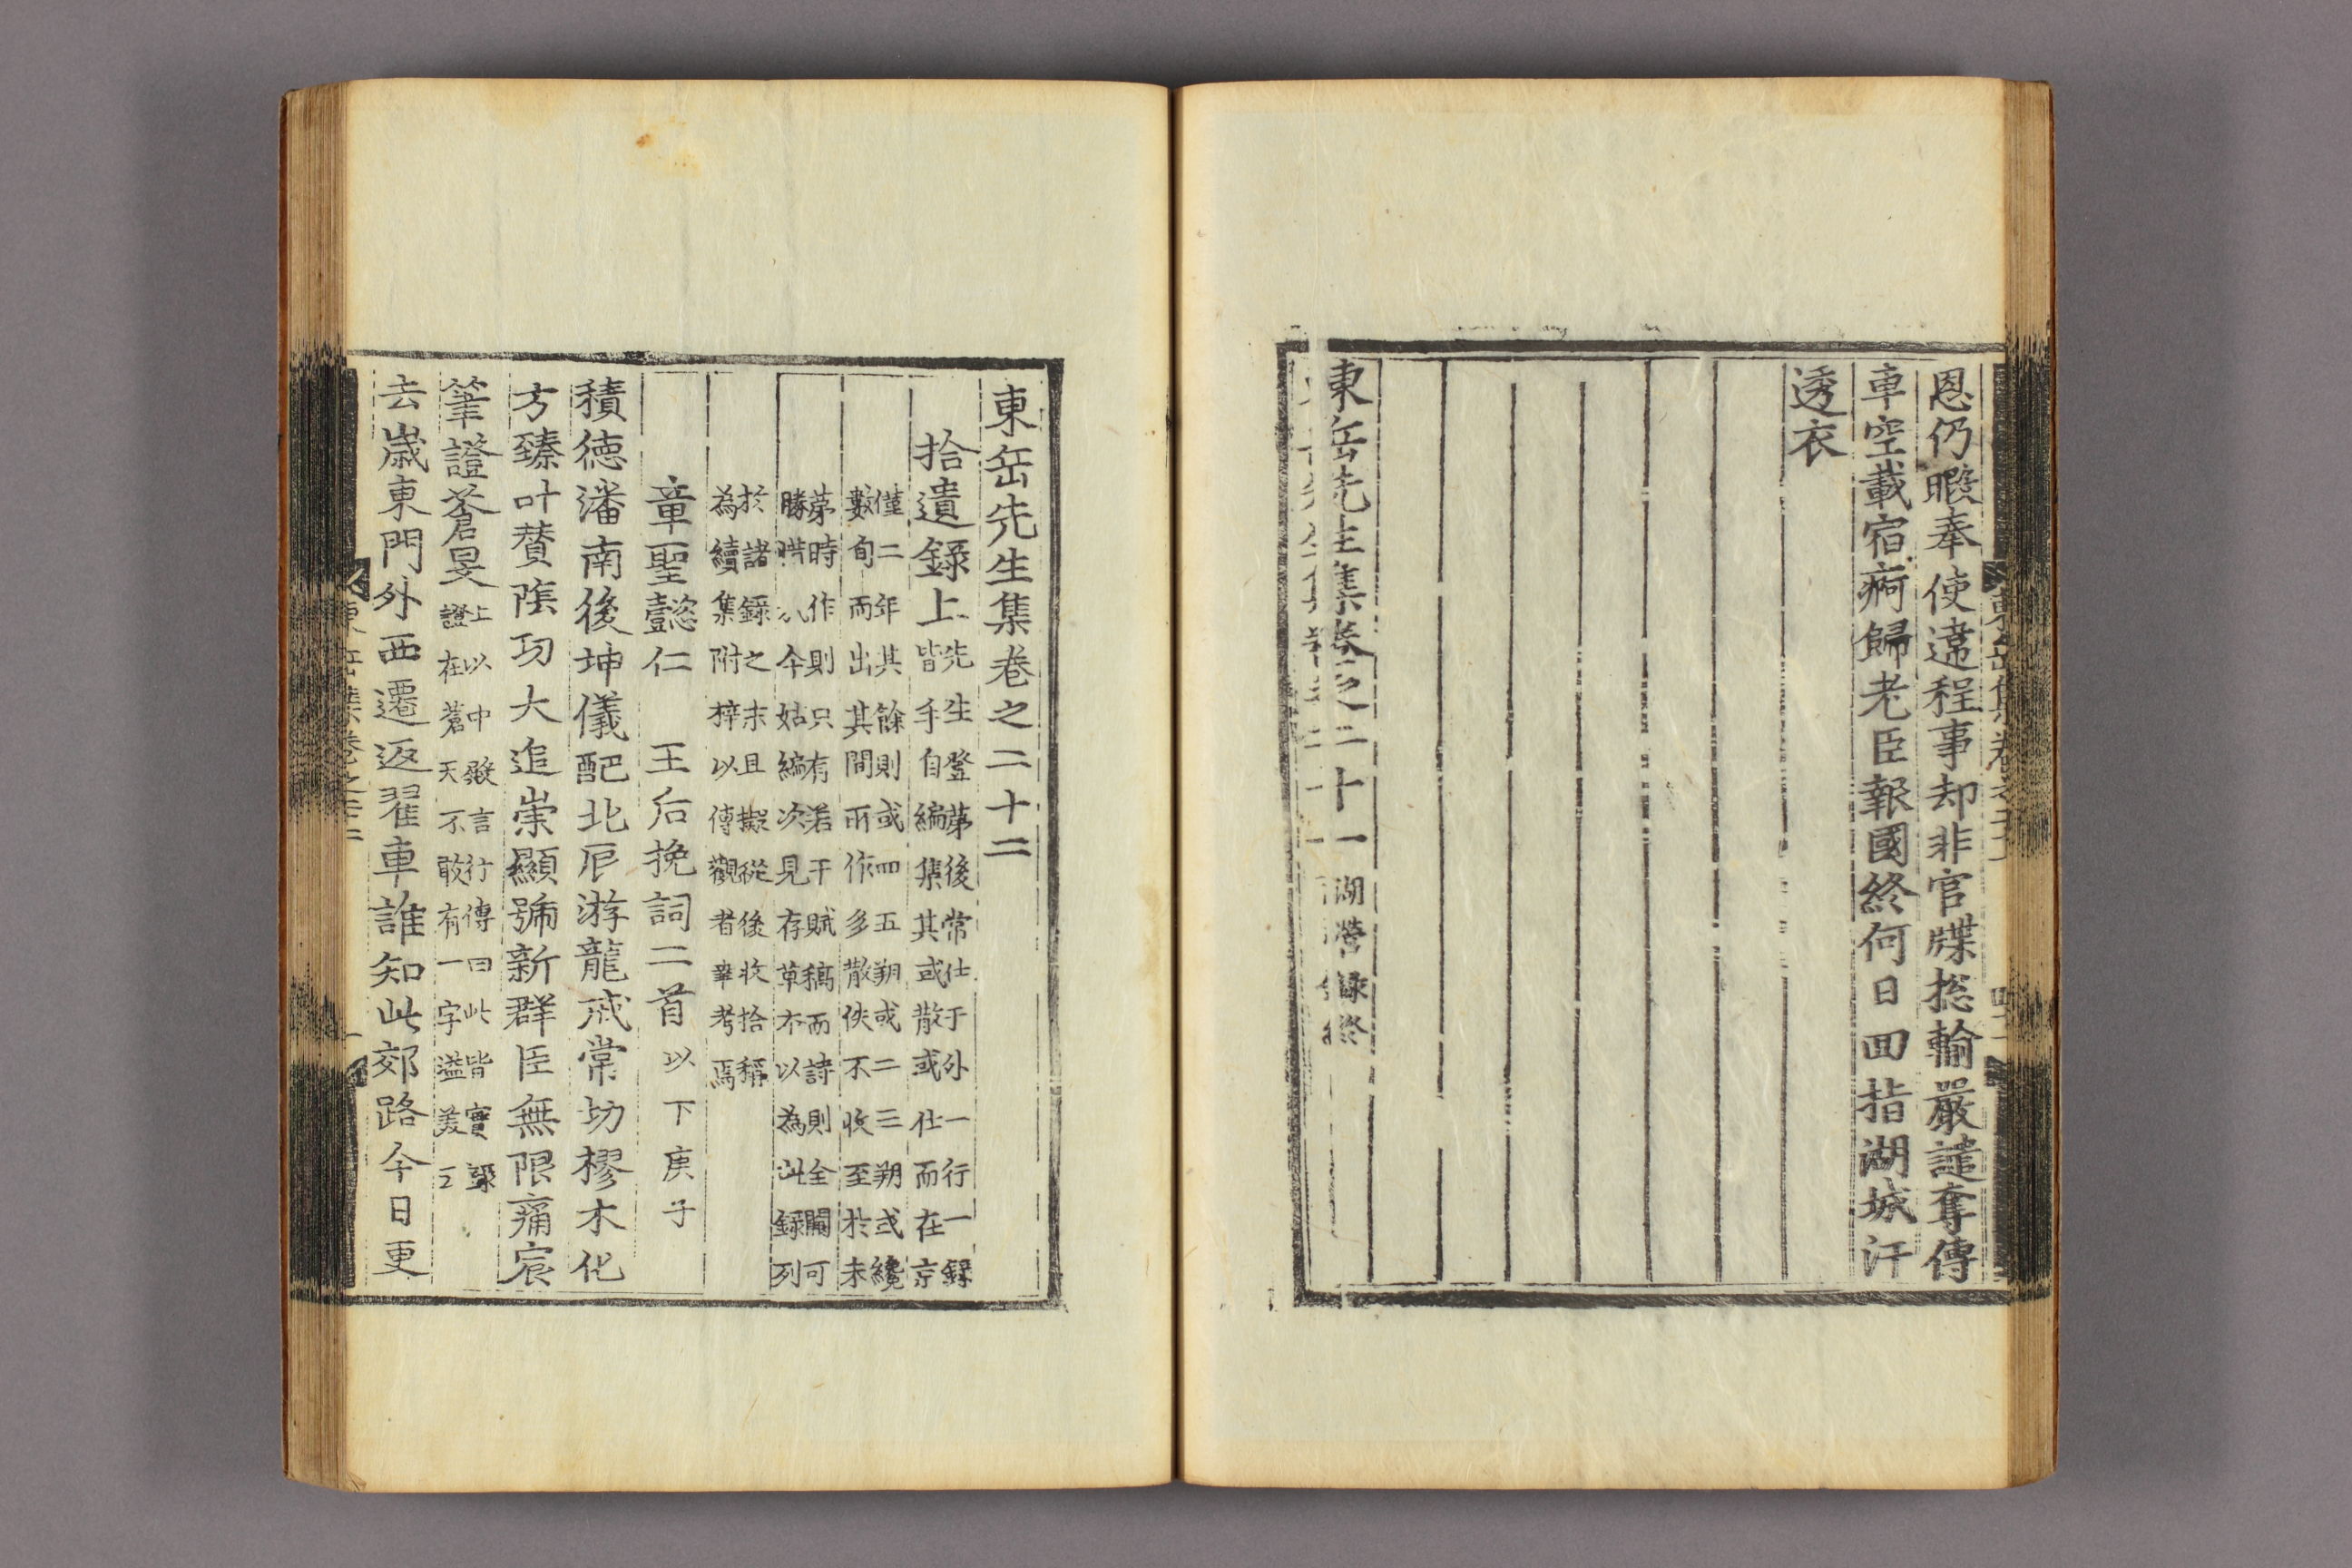 恩仍暇奉使違程事却非官牒捴輸嚴譴奪傳
車空載宿痾歸老臣報國終何日回指湖城汗
透衣
東岳先生集卷之二十一 湖營錄終
東岳先生集卷之二十二
拾遺錄上
先生登第後常仕于外一行一錄
皆手自編集其或散或仕而在京
僅二年其餘則或四五朔或二三朔或纔
數旬而出其間所作多散佚不收至於未
第時作則只有若干賦稿而詩則全闕可
勝惜哉今姑編次見存草本以為此錄列
於諸錄之末且擬從後收拾稱
為續集附梓以傳觀者幸考焉
章聖懿仁 王后挽詞二首 以下庚子
積德潘南後坤儀配北辰游龍戒常切樛木化
方臻叶賛陰功大追崇顯號新群臣無限痛宸
筆證蒼旻
上以中殿言行傳曰此皆實錄
證在蒼天不敢有一字溢美云
去歲東門外西遷返翟車誰知此郊路今日更